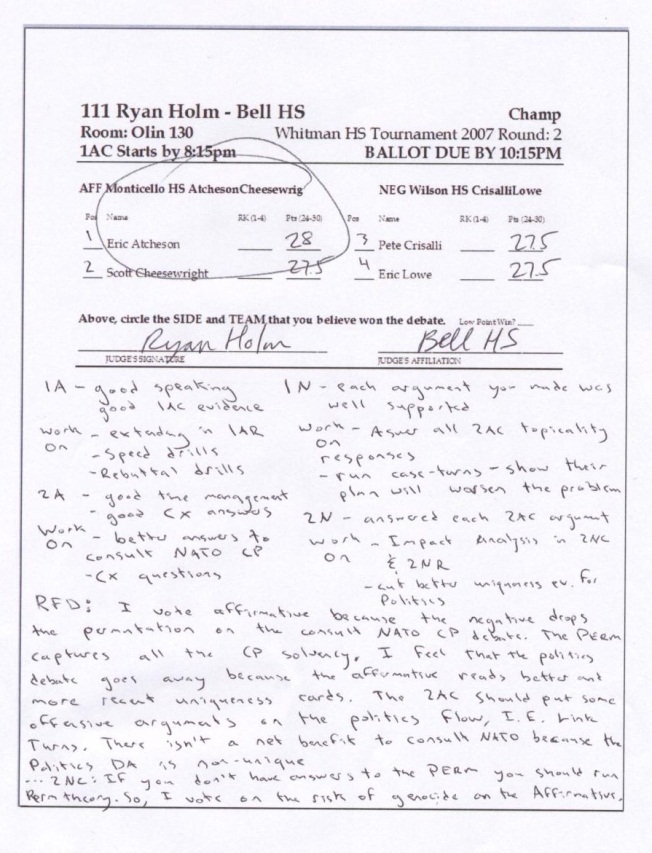 111 Ryan Holm - Bell HS Champ
Room: Olin 130 Whitman HS Tournament 2007 Round: 2
1AC Starts by 8:15pm BALLOT DUE BY 10:15PM
AFF Monticello HS AtchesonCheesewrig NEG Wilson HS CrisalliLowe
Pos Name RK (1-4) Pts (24-30) Pos Name RK (1-4) Pts (24-30)
1 Eric Atcheson 28 3 Pete Crisalli 27.5
2 Scott Cheesewright 27.5 4 Eric Lowe 27.5
Above, circle the SIDE and TEAM that you believe won the debate. Low Point Win?
Ryan Holm Bell HS
JUDGE'S SIGNATURE JUDGE'S AFFILIATION
1A - good speaking
good 1AC evidence
work on - extending in 1AR
- Speed drills
- Rebuttal drills
2A - good time management
- good CX answers
Work on - better answers to
consult NATO CP
- CX questions
1N - each argument you made was
well supported
work on - Answer all 2AC topicality
responses
- run case-turns - show their
plan will worsen the problem
2N - answered each 2AC argument
work on - Impact Analysis in 2NC
& 2NR
- cut better uniqueness ev. for
Politics
RFD: I vote affirmative because the negative drops
the permutation on the consult NATO CP debate. The PERM
captures all the CP solvency. I feel that the politics
debate goes away because the affirmative reads better and
more recent uniqueness cards. The 2AC should put some
offensive arguments on the politics flow, I.E. Link
Turns. There isn't a net benefit to consult NATO because the
Politics DA is non-unique
... 2NC: If you don't have answers to the PERM you should run
Perm theory. So, I vote on the risk of genocide on the Affirmative.